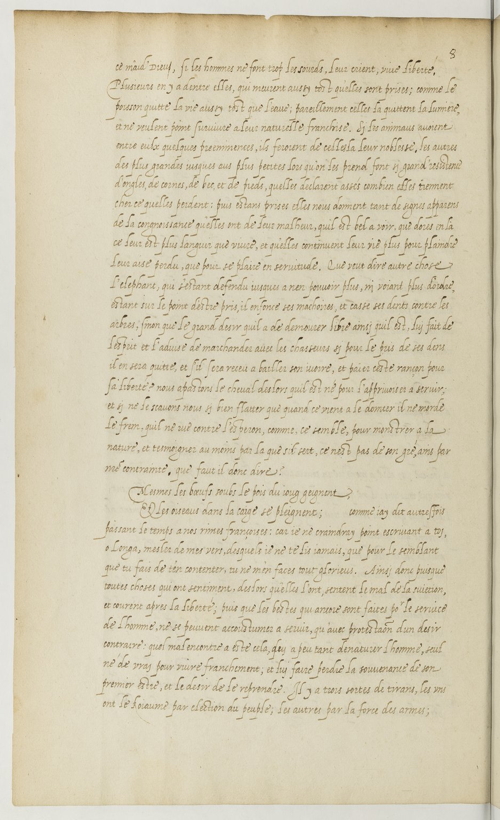 5
ce maid' Dieu, si les hommes ne font trop les sourds, leur crient, vive liberté,
Plusieurs en y a dentre elles, qui meurent aussy tost quelles sont prises; comme le
poisson quitte la vie aussy tost que leaue; pareillement celles la quittent la lumiere,
et ne veulent point survivre a leur naturelle franchise. Si les animaus avoient
entre eulx quelques preeminences, ils feroient de celles la leur noblesse, les autres
des plus grandes iusques aus plus petites lors qu'on les prend font si grand resistence
d'ongles, de cornes, de bec et de pieds, quelles declarent asses combien elles tiennent
cher ce quelles perdent: puis estans prises elles nous donnent tant de signes apparens
de la congnoissance quelles ont de leur malheur, quil est bel a voir, que dores en la
ce leur est plus languir que vivre, et quelles continuent leur vie plus pour plaindre
leur aise perdu, que pour se plaire en servitude. Que veut dire autre chose
l'elephant, qui s'estant defendu iusques a nen pouvoir plus, ni voiant plus d'ordre,
estant sur le point destre pris, il enfonce ses machoires, et casse ses dents contre les
arbres, sinon que le grand desir quil a de demourer libre ainsi quil est, luy fait de
l'esprit et l'advise de marchander avec les chasseurs si pour le pris de ses dens
il en sera quitte, et s'il sera receu a bailler son ivoire, et paier ceste rançon pour
sa liberté? nous apastons le cheval deslors quil est né pour l'apprivoiser a servir;
et si ne le scavons nous si bien flatter que quand ce vient a le domter il ne morde
le frein, quil ne rue contre l'esperon; comme, ce semble, pour monstrer a la
nature, et tesmoigner au moins par la que s'il sert, ce nest pas de son gré, ains par
nre contrainte, que faut il donc dire?
Mesmes les bœufs soubs le pois du ioug geignent,
Et les oiseaus dans la caige se pleignent; comme iay dit autresfois
passant le temps a nos rimes françoises: car ie ne craindray point escrivant a toi,
o Longa, mesler de mes vers, desquels ie ne te lis iamais, que pour le semblant
que tu fais de ten contenter, tu ne men faces tout glorieus. Ainsi donc puisque
toutes choses qui ont sentiment, deslors quelles l'ont, sentent le mal de la suiection,
et courent apres la liberté; puis que les bestes qui ancore sont faites pour le service
de l'homme, ne se peuvent accoustumer a servir, qu'avec protestation d'un desir
contraire: quel malencontre a esté cela, qui a peu tant denaturer l'homme, seul
né de vrai pour vivre franchement; et luy faire perdre la souvenance de son
premier estre, et le desir de le reprendre. Il y a trois sortes de tirans, les uns
ont le Roiaume par election du peuple; les autres par la force des armes;